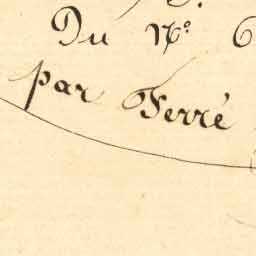 Du N° 6
par Ferré